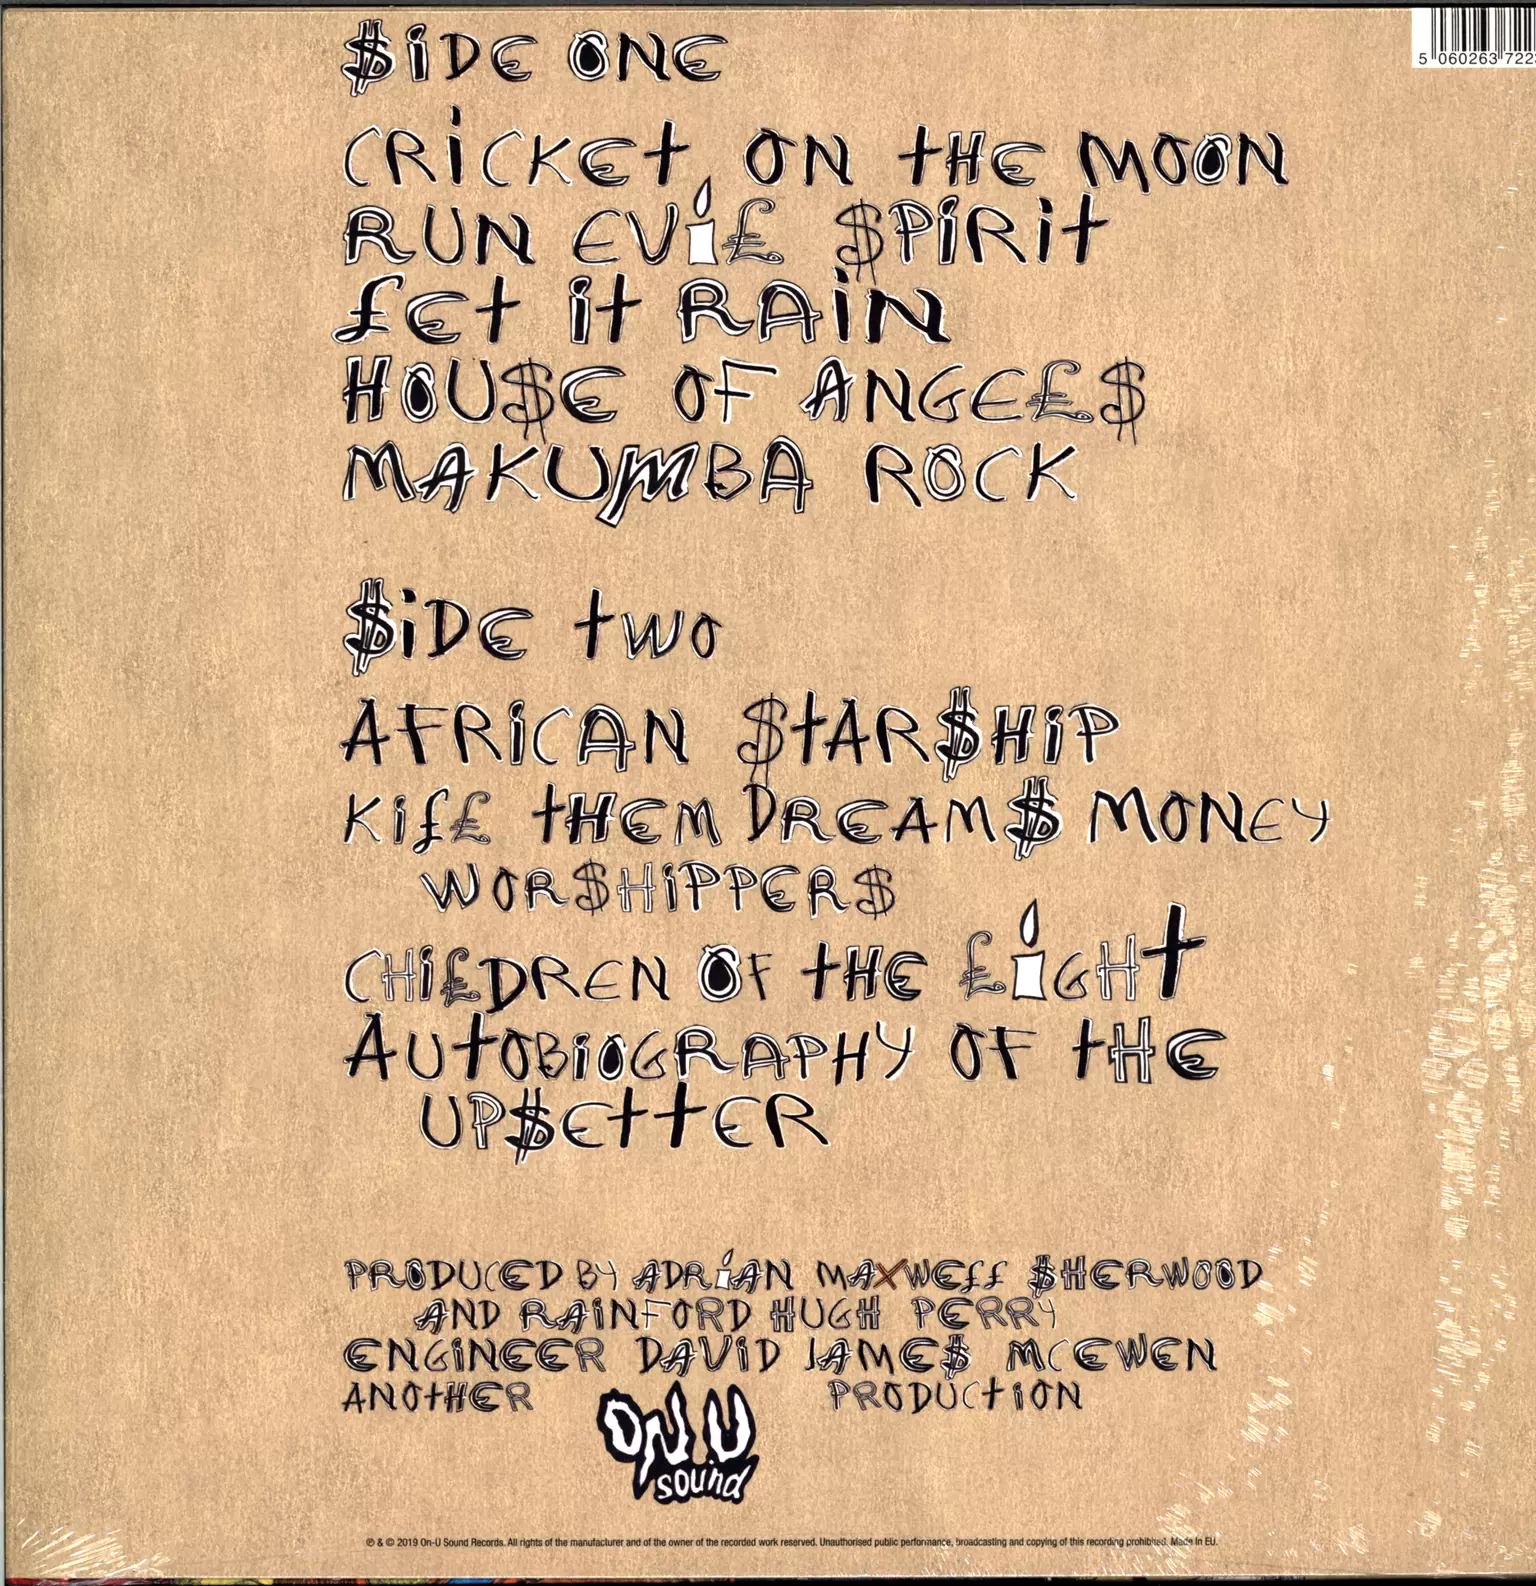 $iDE ONE
5 060263 722
CRiCKEt ON tHE MOON
RUN EVi£ $PiRit
£Et it RAiN
HOU$E OF ANGE£$
MAKUMBA ROCK
$iDE tWO
AFRiCAN $tAR$HiP
Ki££ tHEM DREAM$ MONEY
WOR$HiPPER$
CHi£DREN OF tHE £iGHt
AUtOBiOGRAPHY OF tHE
UP$EttER
PRODUCED BY ADRiAN MAXWE££ $HERWOOD
AND RAiNFORD HUGH PERRY
ENGiNEER DAViD JAME$ MCEWEN
ANOtHER ON U SOUnd PRODUCtiON
℗ & © 2019 On-U Sound Records. All rights of the manufacturer and of the owner of the recorded work reserved. Unauthorised public performance, broadcasting and copying of this recording prohibited. Made In EU.